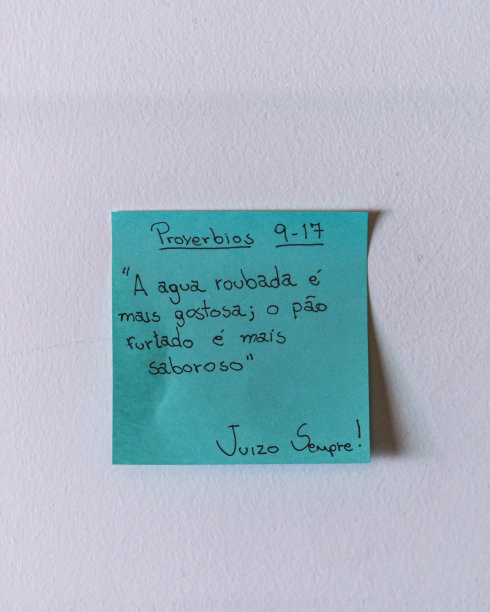 Proverbios 9-17
"A agua roubada é
mais gostosa; o pão
furtado é mais
saboroso"
Juizo Sempre!